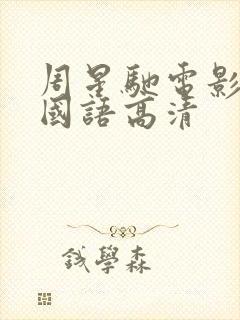 周星馳電影
國語高清
錢學森